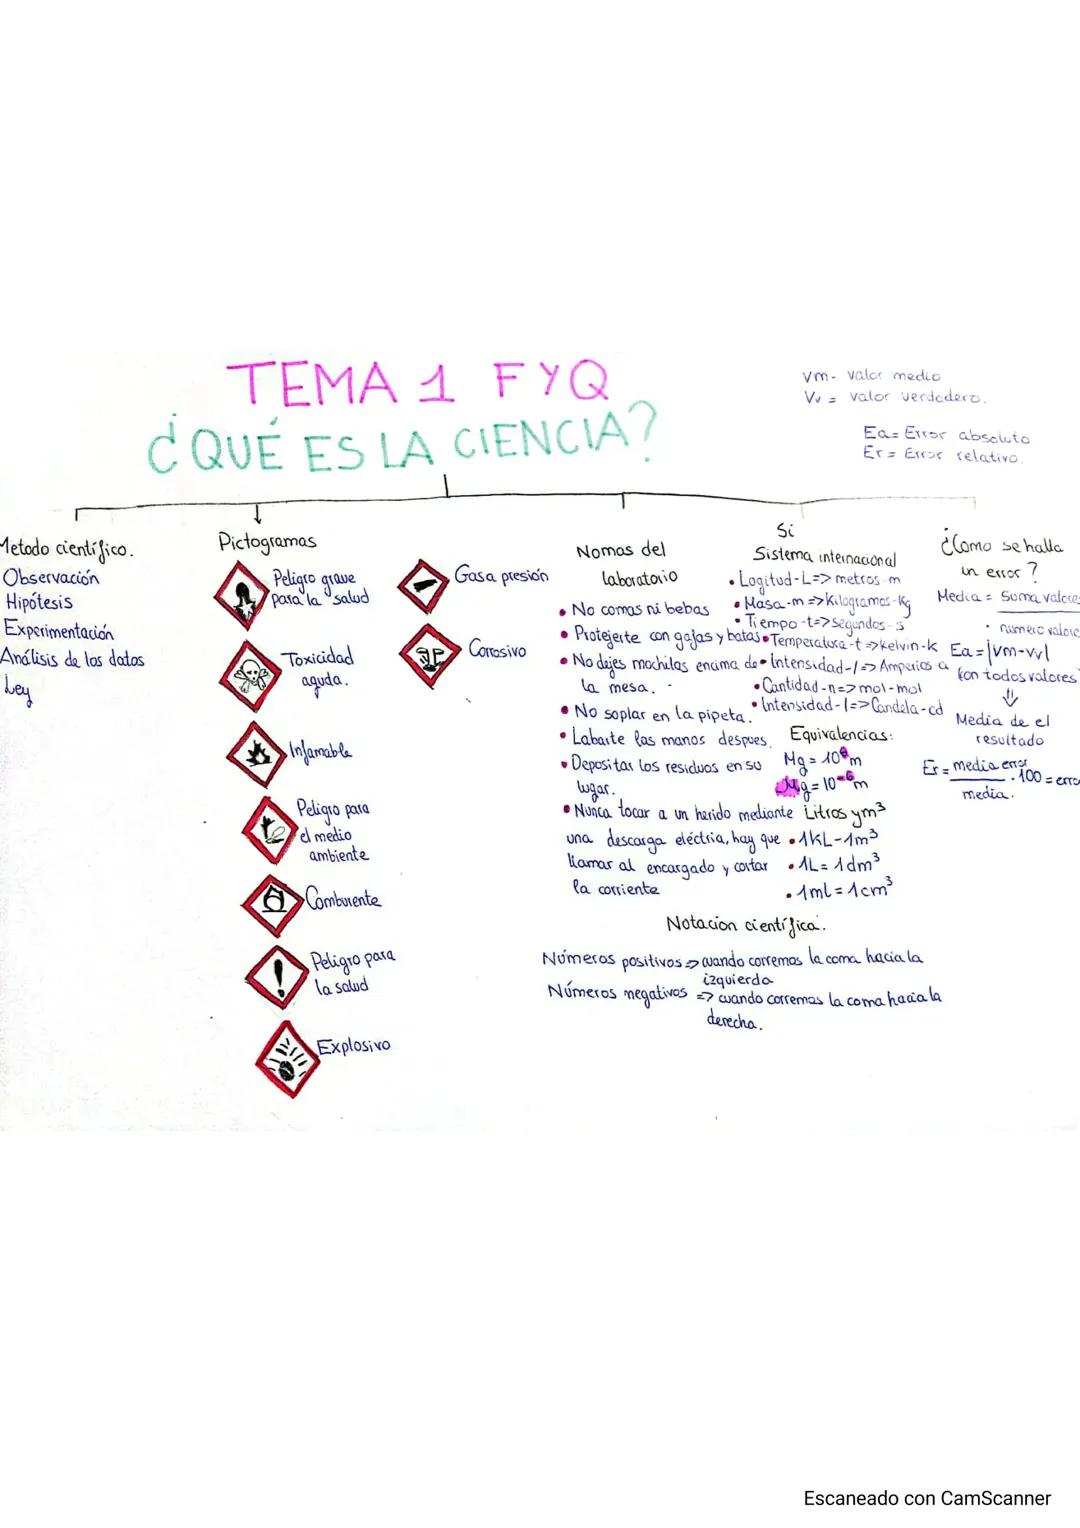 TEMA 1 FYQ
¿QUÉ ES LA CIENCIA?
Vm- valor medio
Vv = valor verdadero.
Ea= Error absoluto
Er= Error relativo.
Metodo científico.
Observación
Hipótesis
Experimentación
Análisis de los datos
Ley
Pictogramas
Peligro grave
para la salud
Toxicidad
aguda.
Inflamable
Peligro para
el medio
ambiente
Comburente
Peligro para
la salud
Explosivo
Gas a presión
Corrosivo
Nomas del
laboratorio
• No comas ni bebas
• Protejerte con gafas y batas
• No dejes mochilas encima de
la mesa.
• No soplar en la pipeta.
• Labarte las manos despues.
• Depositar los residuos en su
lugar.
• Nunca tocar a un herido mediante
una descarga eléctria, hay que
llamar al encargado y cortar
la corriente
Si
Sistema internacional
• Logitud-L=> metros-m
• Masa-m=>Kilogramos-Kg
• Tiempo-t=>segundos-s
• Temperatura-t=>kelvin-k
• Intensidad-I=> Amperios a
• Cantidad-n=>mol-mol
• Intensidad-I=>Candela-cd
Equivalencias:
Mg = 10⁶m
Mg = 10⁻⁶m
Litros y m³
• 1KL-1m³
• 1L = 1dm³
• 1ml = 1cm³
¿Como se halla
un error?
Media = Suma valores
numero valore
Ea = |Vm-Vv|
Con todos valores
⇓
Media de el
resultado
Er = media error · 100 = erro
media.
Notacion científica.
Números positivos => cuando corremos la coma hacia la
izquierda
Números negativos => cuando corremos la coma hacia la
derecha.
Escaneado con CamScanner